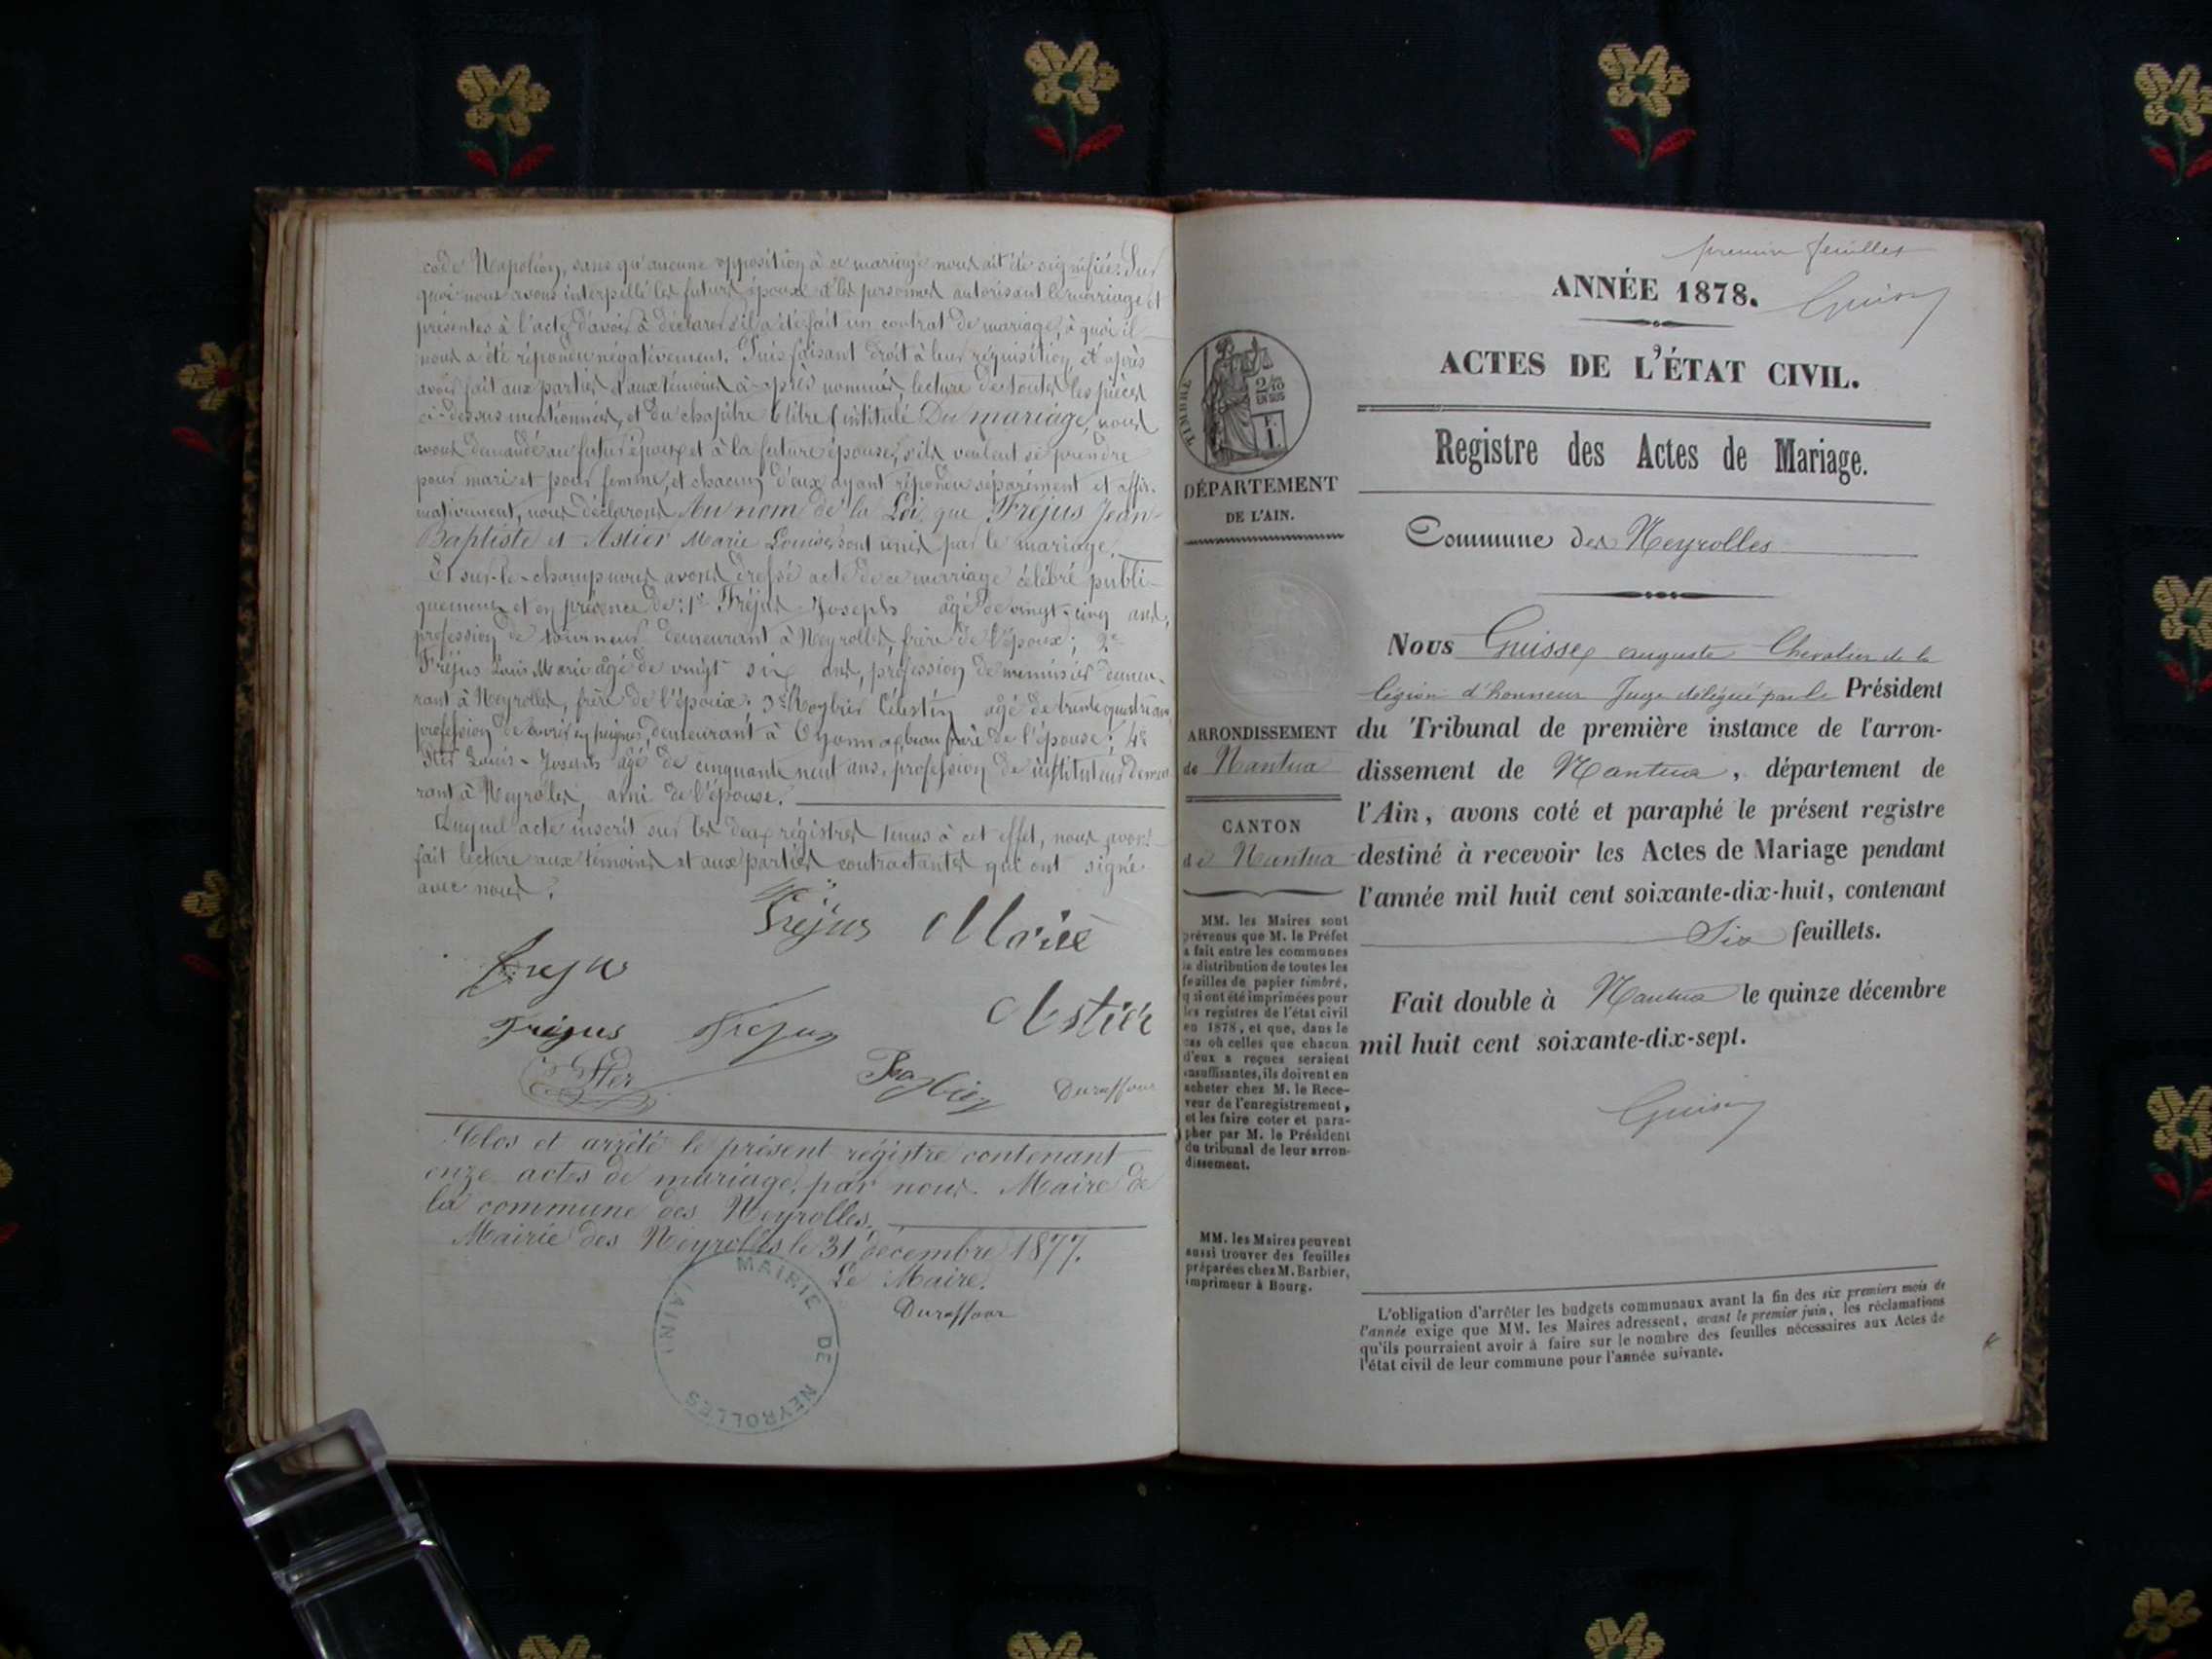 code Napoléon, sans qu'aucune opposition à ce mariage nous ait été signifiée. Sur
quoi nous avons interpellé les futurs époux et les personnes autorisant le mariage et
présentes à l'acte, d'avoir à déclarer s'il a été fait un contrat de mariage, à quoi il
nous a été répondu négativement. Puis faisant droit à leur réquisition, et après
avoir fait aux parties et aux témoins ci-après nommés, lecture de toutes les pièces
ci-dessus mentionnées, et du chapitre 6 titre intitulé Du mariage, nous
avons demandé au futur époux et à la future épouse, s'ils veulent se prendre
pour mari et pour femme, et chacun d'eux ayant répondu séparément et affir-
mativement, nous déclarons Au nom de la Loi que Fréjus Jean-
Baptiste et Astier Marie Louise, sont unis par le mariage.
Et sur-le-champ nous avons dressé acte de ce mariage célébré publi-
quement et en présence de: 1° Fréjus Joseph âgé de vingt-cinq ans,
profession de tourneur demeurant à Neyrolles, frère de l'époux; 2°
Fréjus Louis Marie âgé de vingt six ans, profession de menuisier demeu-
rant à Neyrolles, frère de l'époux; 3° Célestin âgé de trente quatre ans
profession de ouvrier en peignes, demeurant à Oyonnax, beau frère de l'épouse; 4°
Louis-Joseph âgé de cinquante neuf ans, profession de instituteur demeu
rant à Neyrolles, ami de l'épouse.
Duquel acte inscrit sur les deux régistres tenus à cet effet, nous avons
fait lecture aux témoins et aux parties contractantes qui ont signé
avec nous.
Fréjus Marie
Frejus
Astier
Fréjus Frejus
Duraffour
Clos et arrêté le présent régistre contenant
onze actes de mariage, par nous. Maire de
la commune des Neyrolles.
Mairie des Neyrolles le 31 décembre 1877.
Le Maire.
Duraffour
MAIRIE DE NEYROLLES (AIN)
premier feuillet
ANNÉE 1878.
ACTES DE L'ÉTAT CIVIL.
Registre des Actes de Mariage.
TIMBRE
2/10
EN SUS
DÉPARTEMENT
DE L'AIN.
Commune des Neyrolles
ARRONDISSEMENT
de Nantua
CANTON
de Nantua
MM. les Maires sont
prévenus que M. le Préfet
a fait entre les communes
la distribution de toutes les
feuilles de papier timbré,
qui ont été imprimées pour
les registres de l'état civil
en 1878, et que, dans le
cas où celles que chacun
d'eux a reçues seraient
insuffisantes, ils doivent en
acheter chez M. le Rece-
veur de l'enregistrement,
et les faire coter et para-
pher par M. le Président
du tribunal de leur arron-
dissement.
MM. les Maires peuvent
aussi trouver des feuilles
préparées chez M. Barbier,
imprimeur à Bourg.
Nous auguste Chevalier de la
légion d'honneur Juge délégué par le Président
du Tribunal de première instance de l'arron-
dissement de Nantua, département de
l'Ain, avons coté et paraphé le présent registre
destiné à recevoir les Actes de Mariage pendant
l'année mil huit cent soixante-dix-huit, contenant
Six feuillets.
Fait double à Nantua le quinze décembre
mil huit cent soixante-dix-sept.
L'obligation d'arrêter les budgets communaux avant la fin des six premiers mois de
l'année exige que MM. les Maires adressent, avant le premier juin, les réclamations
qu'ils pourraient avoir à faire sur le nombre des feuilles nécessaires aux Actes de
l'état civil de leur commune pour l'année suivante.